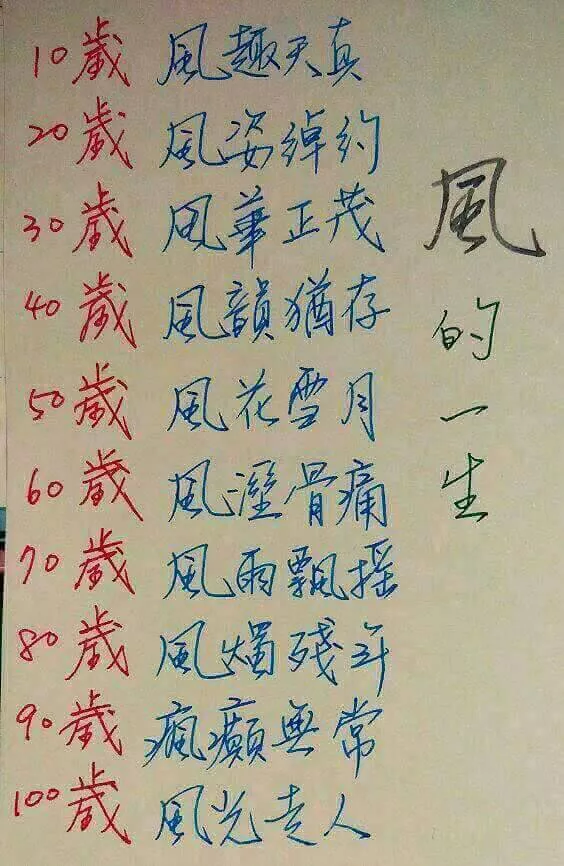 風的一生
10歲 風趣天真
20歲 風姿綽約
30歲 風華正茂
40歲 風韻猶存
50歲 風花雪月
60歲 風溼骨痛
70歲 風雨飄摇
80歲 風燭殘年
90歲 瘋癲無常
100歲 風光走人